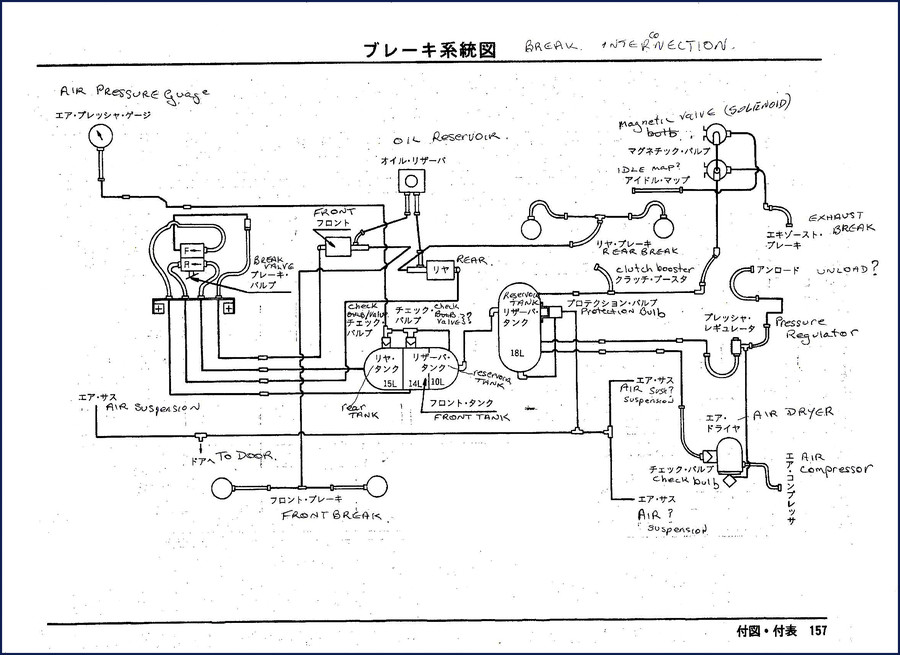 ブレーキ系統図 BREAK. INTERCONNECTION.
AIR PRESSURE Guage
エア・プレッシャ・ゲージ
OIL Reservoir.
オイル・リザーバ
magnetic valve (SOLENOID)
マグネチック・バルブ
IDLE map?
アイドル・マップ
EXHAUST
BREAK
エキゾースト・
ブレーキ
FRONT
フロント
F
R
BREAK
VALVE
ブレーキ・
バルブ
REAR.
リヤ
リヤ・ブレーキ
REAR BREAK
clutch booster
クラッチ・ブースタ
アンロード UNLOAD?
check
チェック・
バルブ
チェック・
バルブ
check
valve??
Reservoir
TANK
リザーバ・
タンク
18L
プロテクション・バルブ
Protection Bulb
プレッシャ・
レギュレータ
Pressure
Regulator
リヤ・
タンク
15L
リザーバ・
タンク
14L 10L
reservoir
TANK
rear
TANK
フロント・タンク
FRONT TANK
エア・サス
AIR SUSPENSION
エア・サス
AIR SUST?
suspension
エア・
ドライヤ
AIR DRYER
ドアへ TO DOOR.
チェック・バルブ
check bulb
エア・コンプレッサ
AIR
Compressor
フロント・ブレーキ
FRONT BREAK.
エア・サス
AIR ?
suspension
付図・付表 157